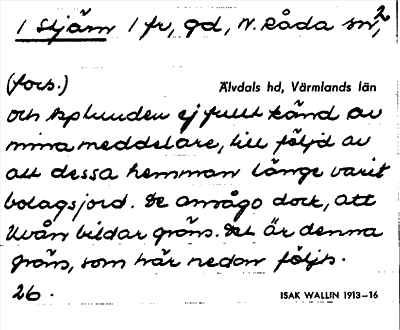 1 Stjärn 1 fr, gd, N. Råda sn, 2
(fors.)
Älvdals hd, Värmlands län
och Asplunden ej fullt känd av
mina meddelare, till följd av
att dessa hemman länge varit
bolagsjord. De ansågo dock, att
Uvån bildar gräns. Det är denna
gräns, som här nedan följts.
26.
ISAK WALLIN 1913–16